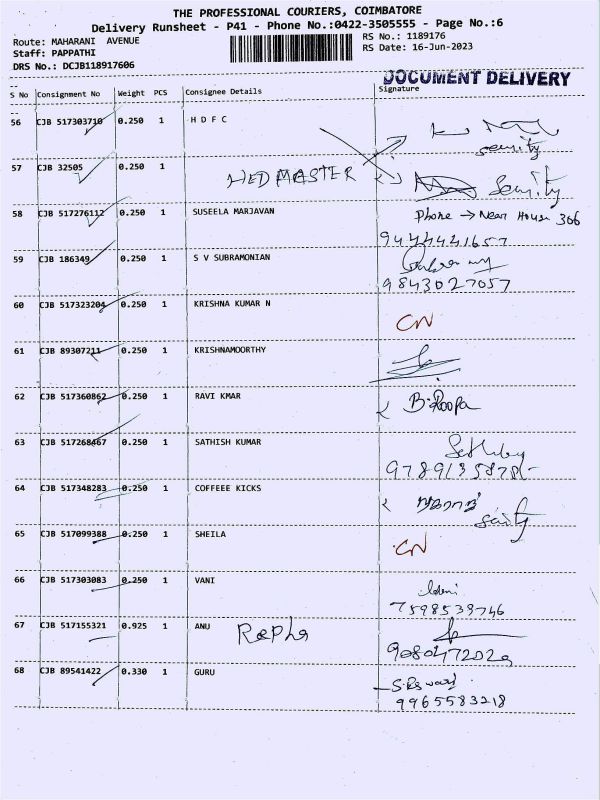 THE PROFESSIONAL COURIERS, COIMBATORE
Delivery Runsheet - P41 - Phone No.:0422-3505555 - Page No.:6
Route: MAHARANI AVENUE
RS No.: 1189176
Staff: PAPPATHI
RS Date: 16-Jun-2023
DRS No.: DCJB118917606
DOCUMENT DELIVERY
S No Consignment No Weight PCS Consignee Details Signature
56 CJB 517303710 0.250 1 H D F C
security
57 CJB 32505 0.250 1 HED MASTER Security
58 CJB 517276112 0.250 1 SUSEELA MARJAVAN Phone → Near House 306
9444441657
59 CJB 186349 0.250 1 S V SUBRAMONIAN
9843027057
60 CJB 517323204 0.250 1 KRISHNA KUMAR N CN
61 CJB 89307211 0.250 1 KRISHNAMOORTHY
62 CJB 517360862 0.250 1 RAVI KMAR B.Roopa
63 CJB 517268467 0.250 1 SATHISH KUMAR
64 CJB 517348283 0.250 1 COFFEEE KICKS
65 CJB 517099388 0.250 1 SHEILA CN
66 CJB 517303083 0.250 1 VANI
7598539746
67 CJB 517155321 0.925 1 ANU
9080472029
68 CJB 89541422 0.330 1 GURU
9965583218